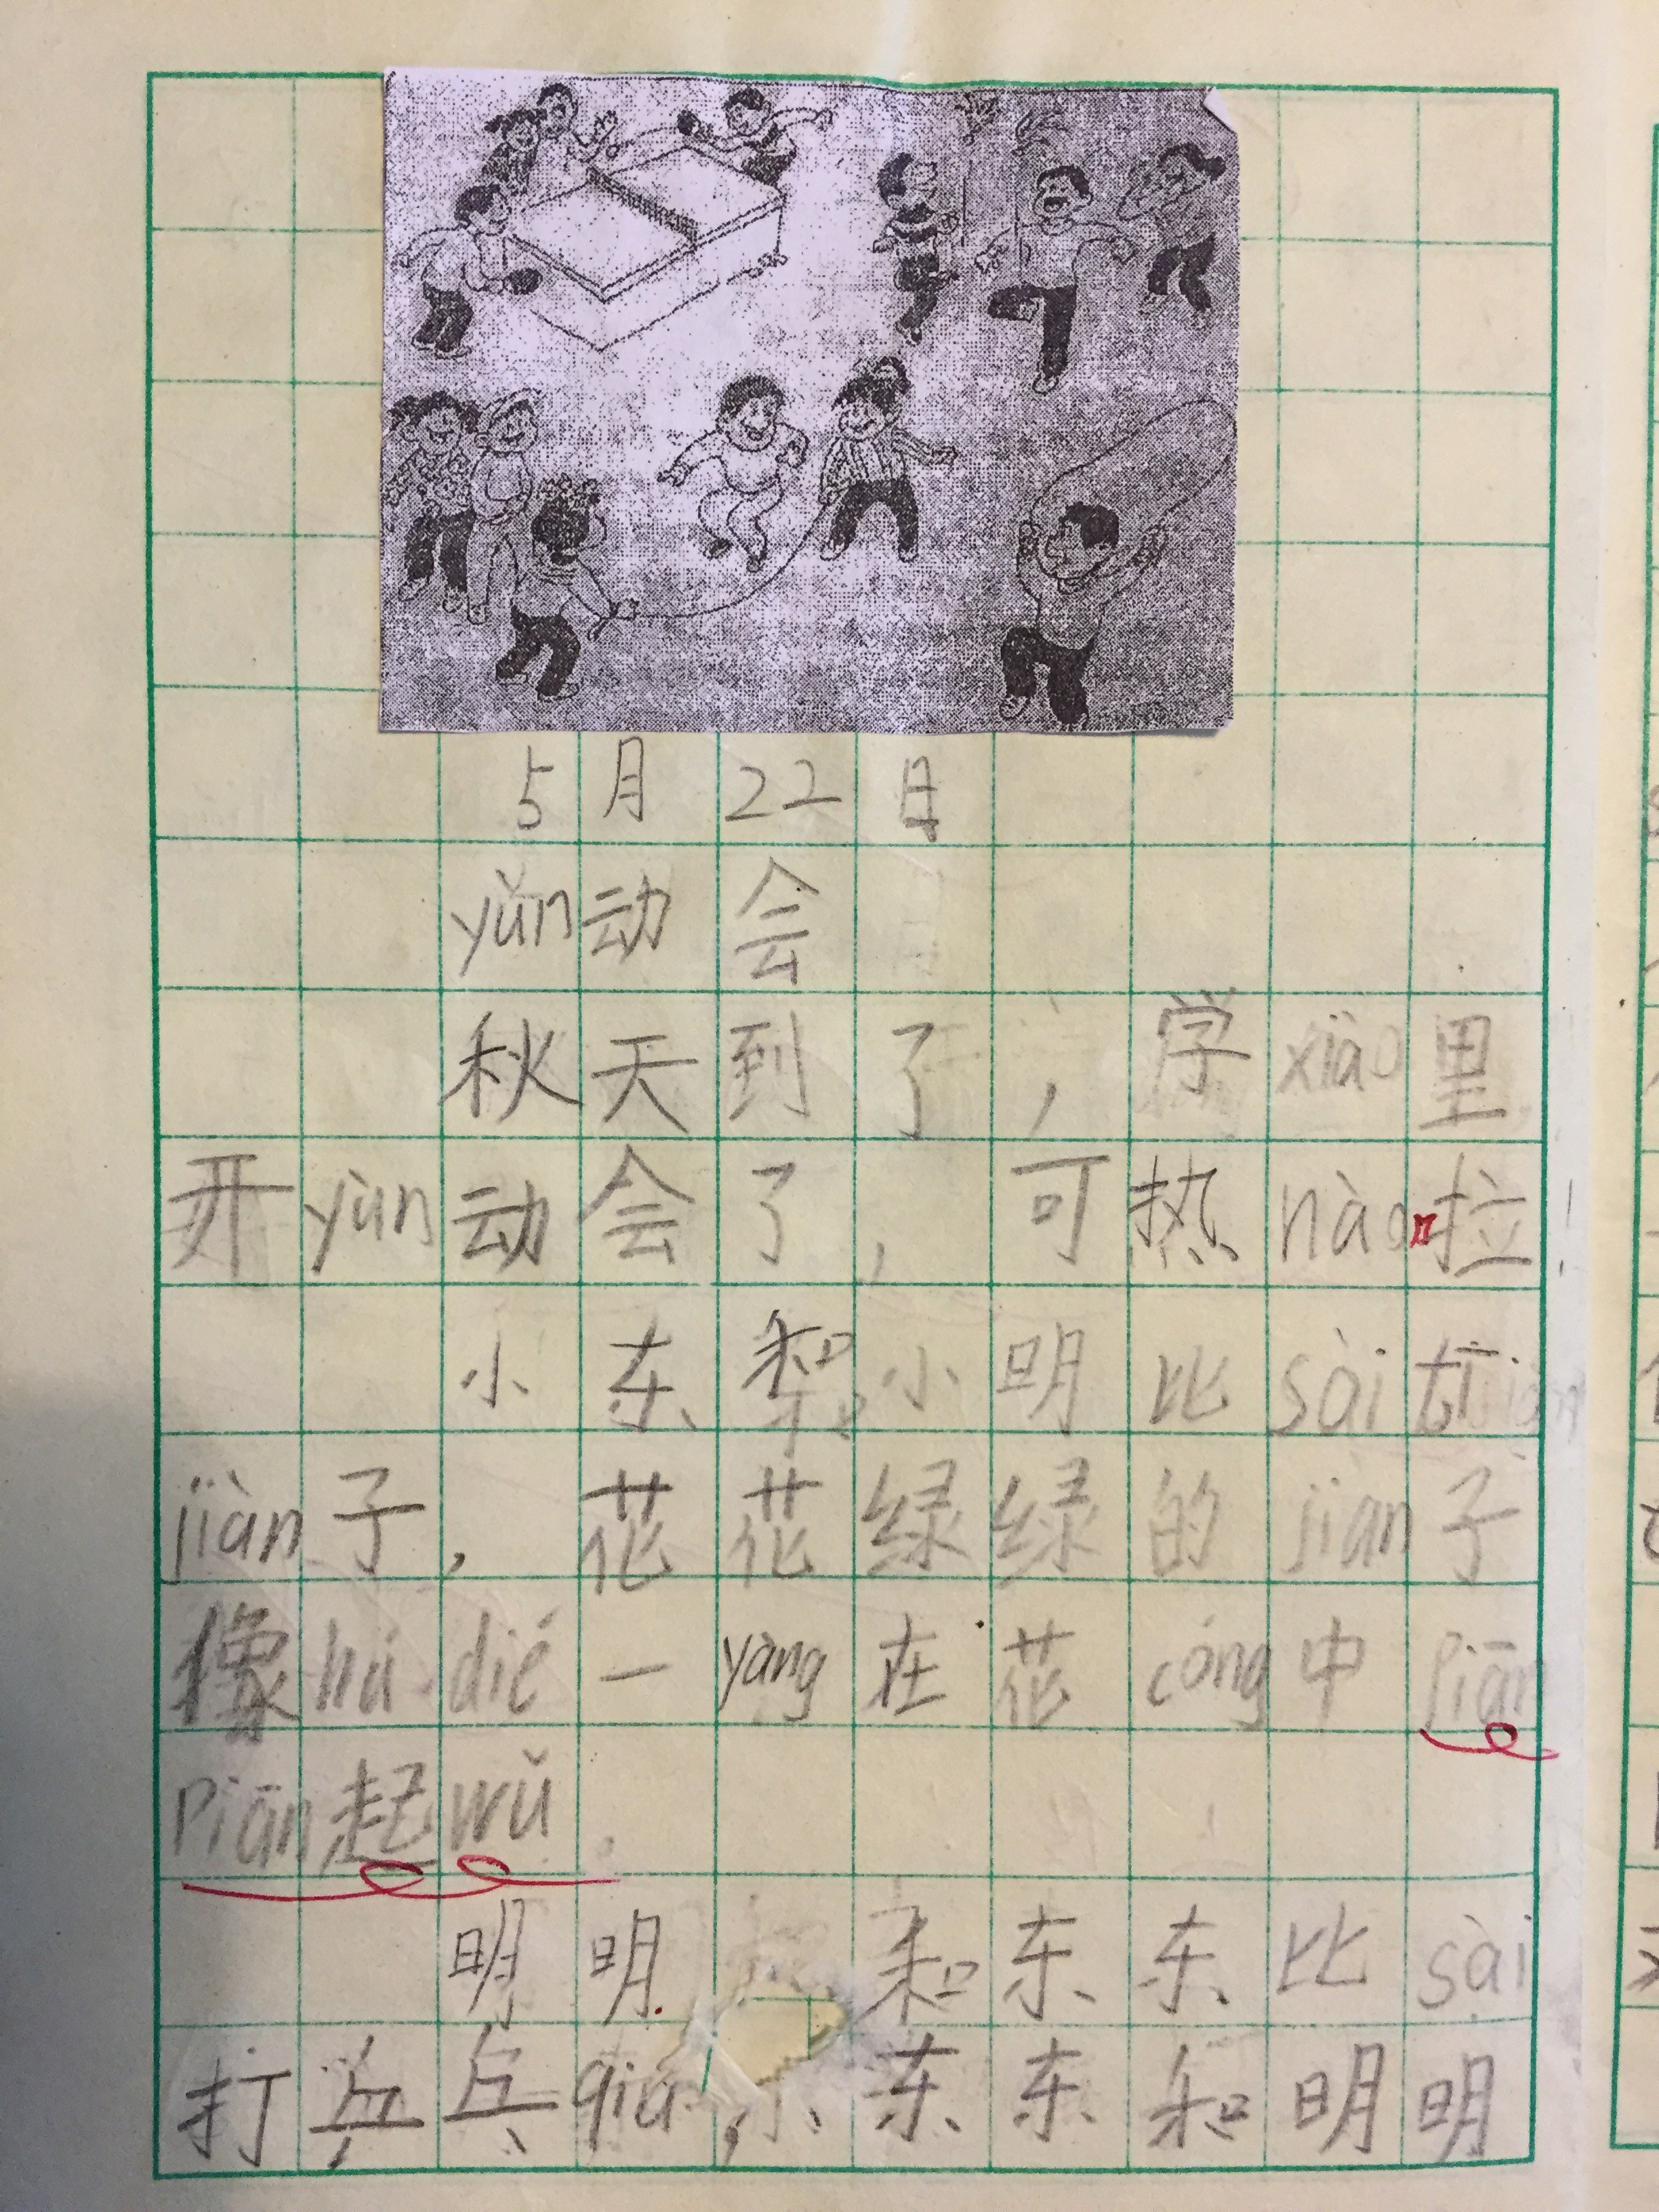 5月22日
yǔn动会
秋天到了，学xiào里
开yùn动会了，可热nào拉！
小东和小明比sài
jiàn子，花花绿绿的jiàn子
像hú dié一yàng在花cóng中piān
piān起wǔ。
明明和东东比sài
打乒乓qiú，东东和明明